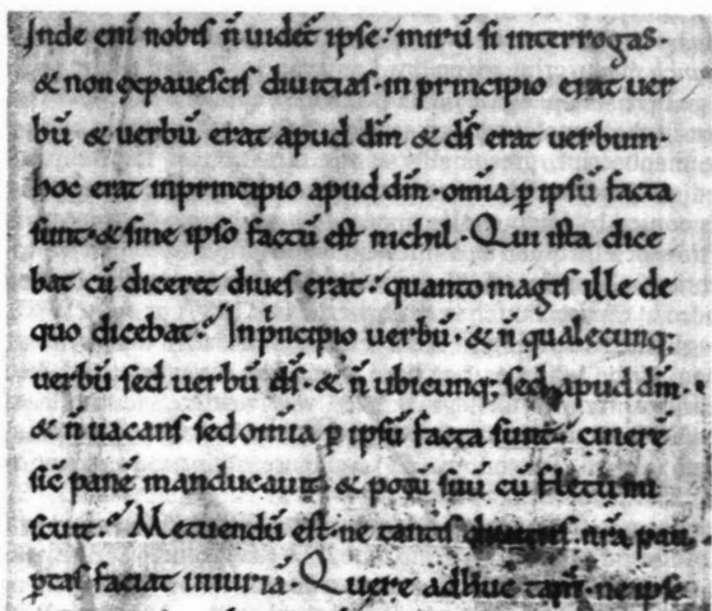 Inde eni nobis n̄ uidet̄ ipse. mirū si interrogas.
& non ęxpauescis diuicias. in principio erat uer
bū & uerbū erat apud dm̄ & ds̄ erat uerbum.
hoc erat inprincipio apud dm̄. om̄ia ꝑ ipsū facta
sunt. & sine ipso factū est nichil. Qui ista dice
bat cū diceret diues erat. quanto magis ille de
quo dicebat. Inpncipio uerbū. & n̄ qualecunq;
uerbū sed uerbū ds̄. & n̄ ubicunq; sed apud dm̄.
& n̄ uacans sed om̄ia ꝑ ipsū facta sunt. cinerē
sic̄ panē manducauit & potū suū cū fletu mi
scuit. Metuendū est ne tantis diuitiis nr̄a pau
ꝑtas faciat iniuriā. Quere adhuc tam̄. ne ipse